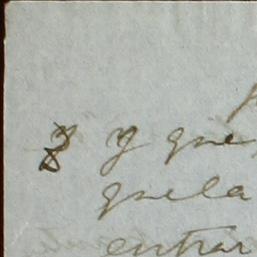 y que
que la
entrar